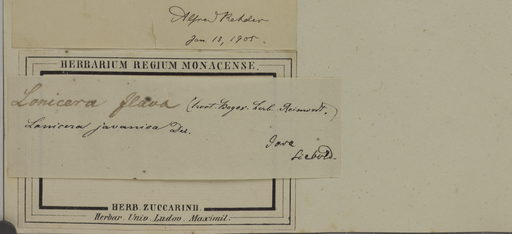 Alfred Rehder
Jan 13, 1905.
HERBARIUM REGIUM MONACENSE.
Lonicera flava (hort. Bogor. herb. Reinwardt.)
Lonicera javanica Dec.
Java
Siebold.
HERB. ZUCCARINII.
Herbar. Univ. Ludov. Maximil.